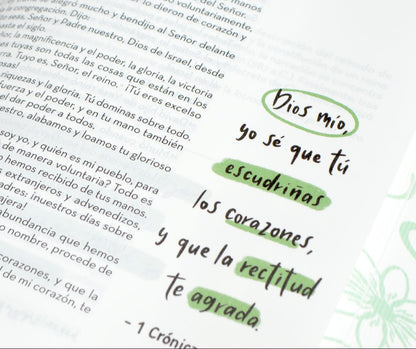 del Señor.
voluntariamente,
lo dieron de corazón y
alegró mucho y bendijo al Señor delante
congregación. Dijo:
seas, Señor y Padre nuestro, Dios de Israel, desde
hasta el siglo.
la magnificencia y el poder, la gloria, la victoria
tuyas son todas las cosas que están en los
Tuyo es, Señor, el reino. ¡Tú eres excelso
riquezas y la gloria. Tú dominas sobre todo.
fuerza y el poder, y en tu mano también
el dar poder a todos.
nuestro, alabamos y loamos tu glorioso
soy yo, y quién es mi pueblo, para
de manera voluntaria? Todo es
lo hemos recibido de tus manos.
extranjeros y advenedizos,
padres; ¡nuestros días sobre
pasajera!
abundancia que hemos
nombre, procede de
corazones, y que la
de mi corazón, te
Dios mío,
yo sé que tú
escudriñas
los corazones,
y que la rectitud
te agrada.
- 1 Crónica